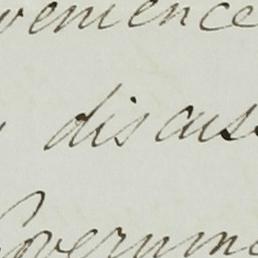 venience
discus
Governme